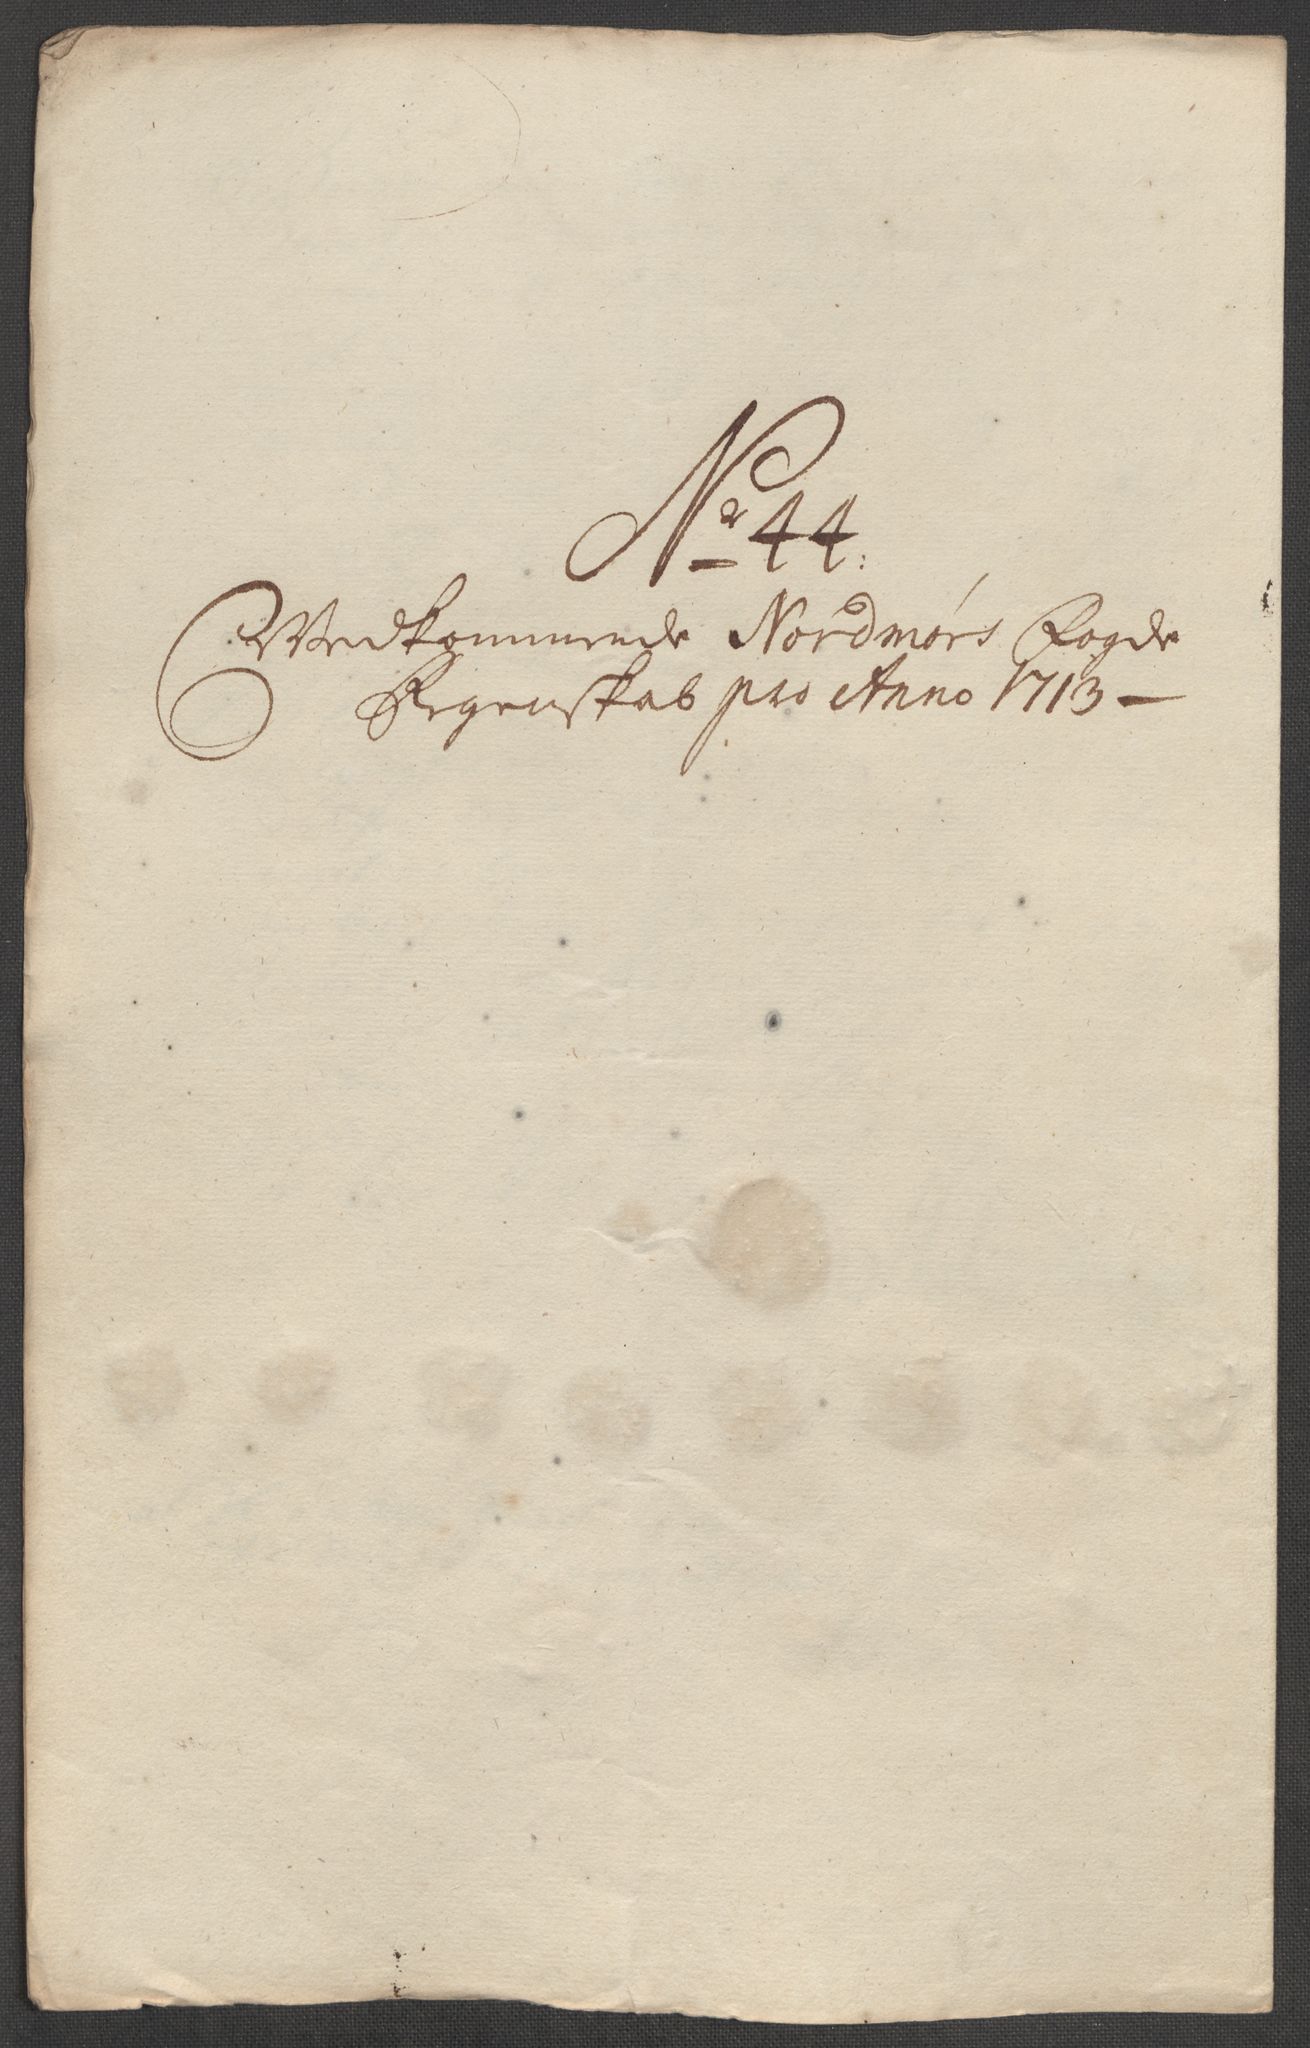 No 44:
Vedkommende Nordmørs Fogde
Regenskab pro Anno 1713 –